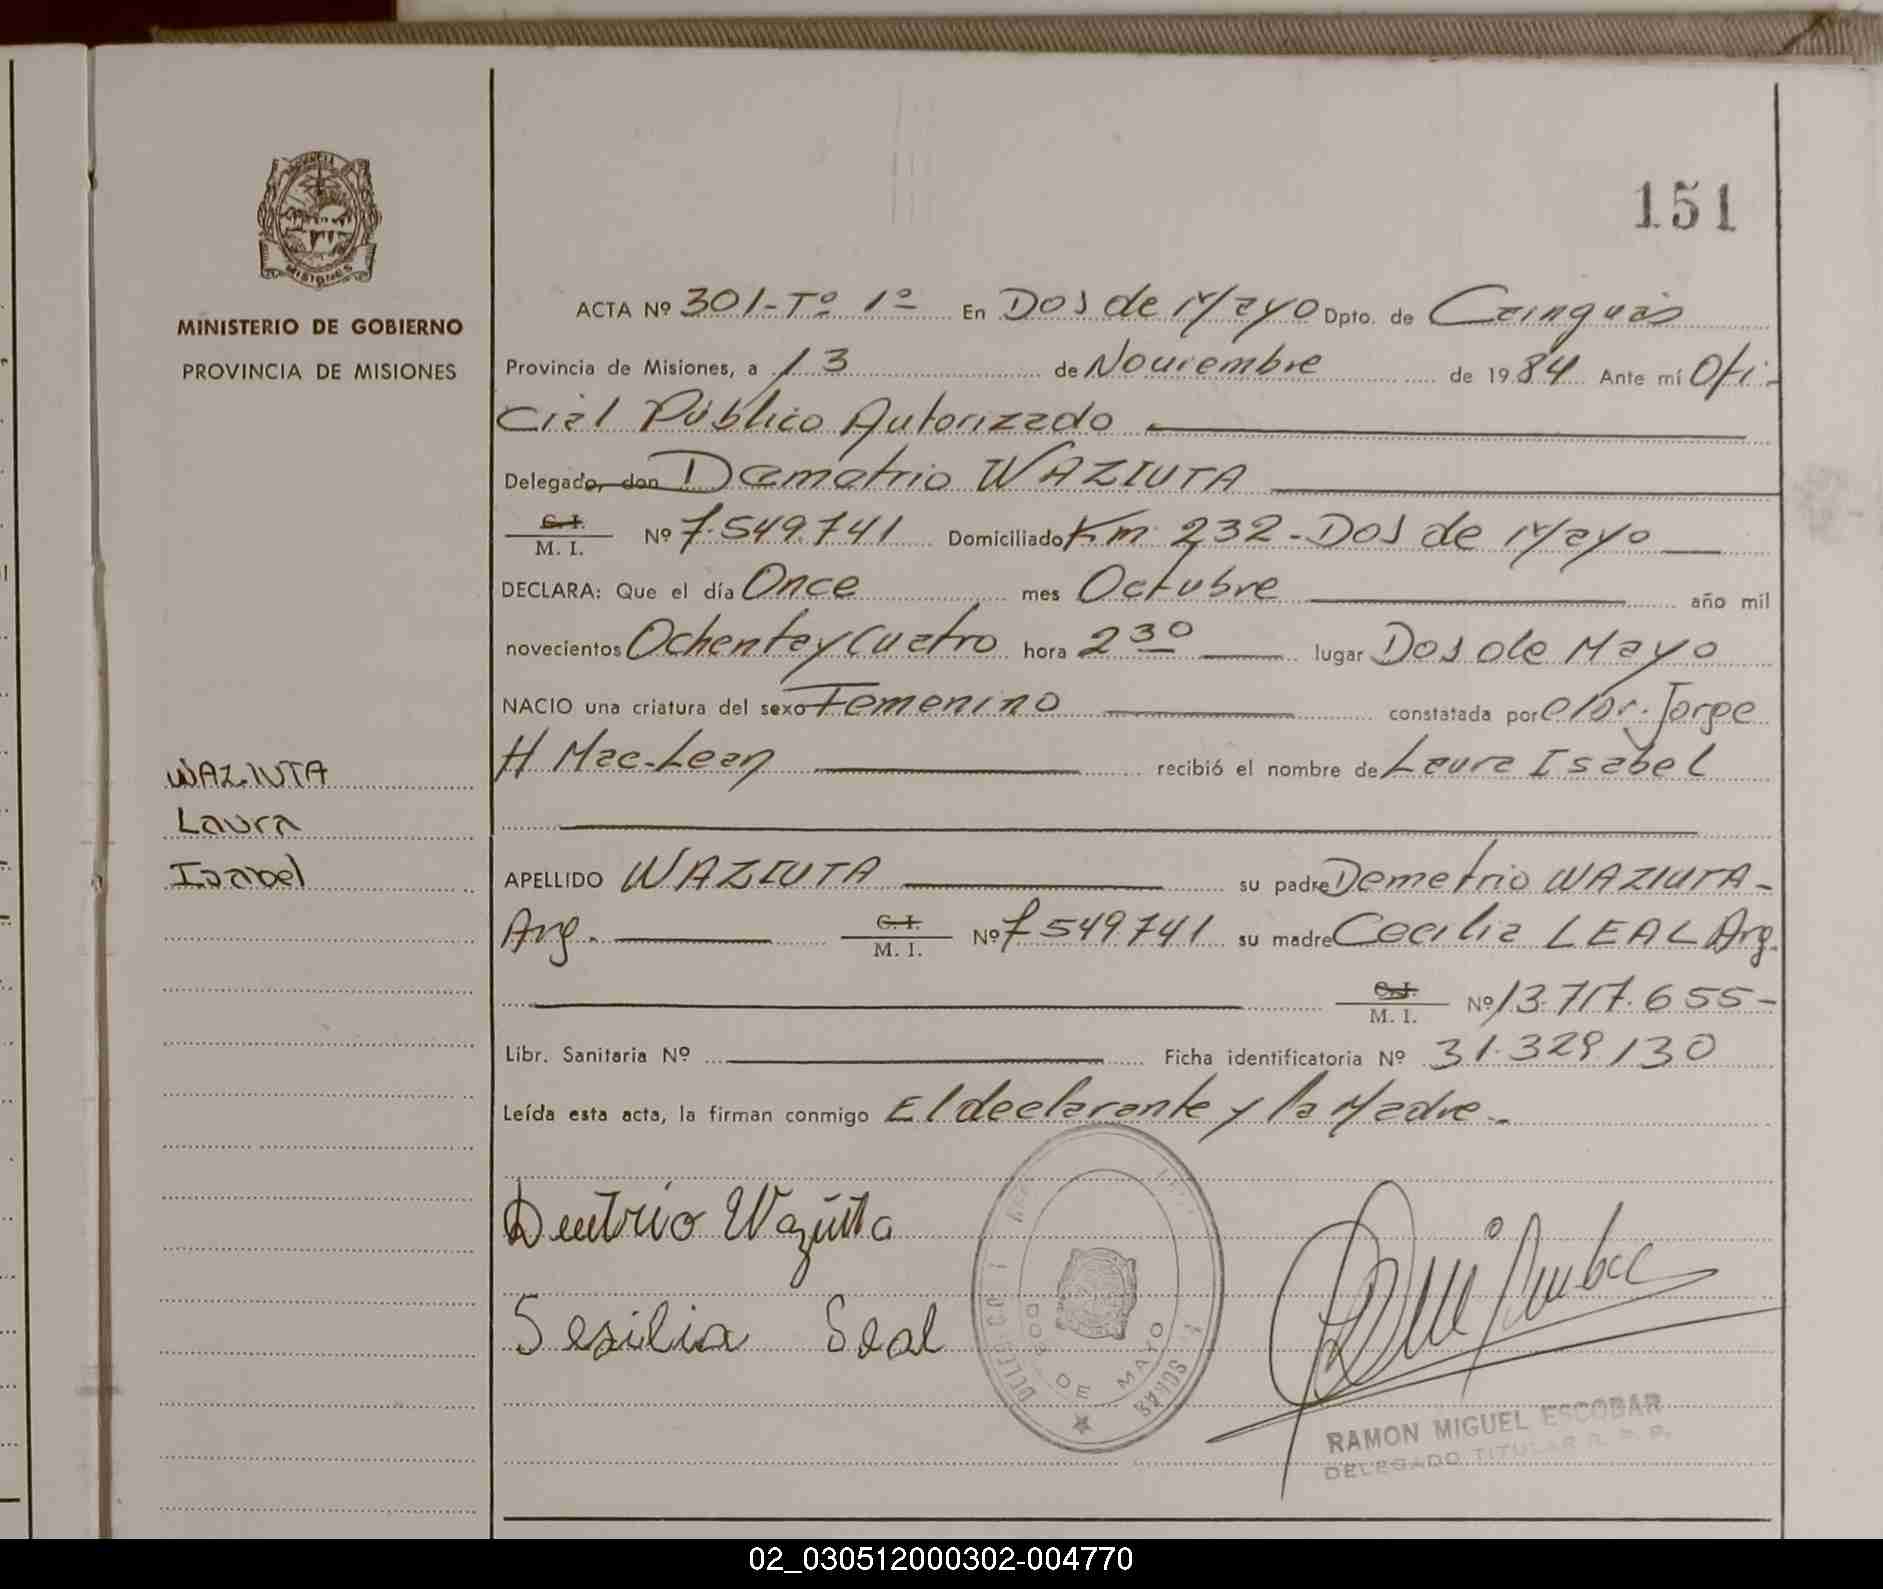 151
MINISTERIO DE GOBIERNO
PROVINCIA DE MISIONES
MISIONES
ACTA Nº 301-Tº 1º En Dos de Mayo Dpto. de Cainguás
Provincia de Misiones, a 13 de Noviembre de 1984 Ante mí Ofi-
cial Público Autorizado
Delegado, don Demetrio WAZIUTA
C. I.
M. I. Nº 7.549.741 Domiciliado Km 232-Dos de Mayo
DECLARA: Que el día Once mes Octubre año mil
novecientos Ochenta y Cuatro hora 2 30 lugar Dos de Mayo
NACIO una criatura del sexo Femenino constatada por el Dr. Jorge
H Mac-Lean recibió el nombre de Laura Isabel
WAZIUTA
Laura
Isabel
APELLIDO WAZIUTA su padre Demetrio WAZIUTA-
Arg. C. I.
M. I. Nº 7549.741 su madre Cecilia LEAL Arg.
C. I.
M. I. Nº 13.717.655-
Libr. Sanitaria Nº Ficha identificatoria Nº 31.329.130
Leída esta acta, la firman conmigo El declarante y la Madre-
Demtrio Waziuta
Sesilia Seal
DOS DE MAYO
RAMON MIGUEL ESCOBAR
DELEGADO TITULAR R. P. P.
02_030512000302-004770